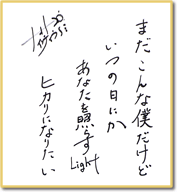 まだこんな僕だけど
いつの日にか
あなたを照らすLight
ヒカリになりたい